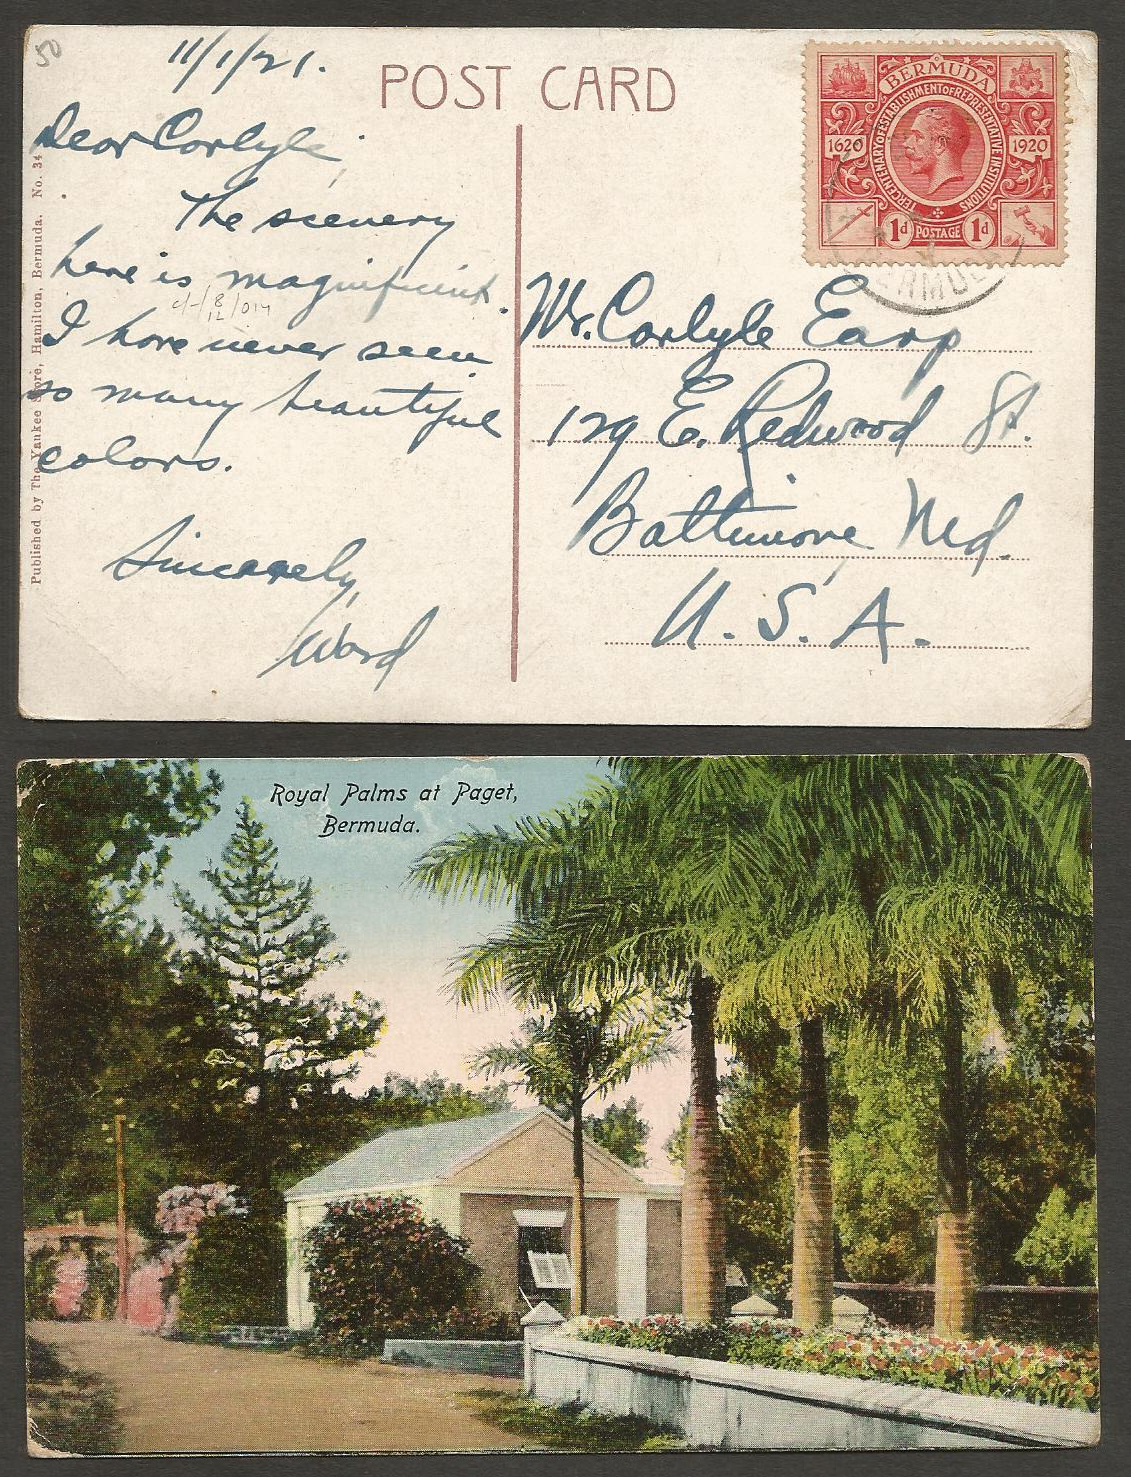 50
11/1/21.
POST CARD
Dear Carlyle,
The scenery
here is magnificent.
I have never seen
so many beautiful
colors.
Sincerely,
Ward
Published by The Yankee Store, Hamilton, Bermuda. No. 34
BERMUDA
TERCENTENARY OF ESTABLISHMENT OF REPRESENTATIVE INSTITUTIONS
1620 1920
1d POSTAGE 1d
BERMUDA
Mr. Carlyle Earp
129 E. Redwood St.
Baltimore, Md.
U. S. A.
Royal Palms at Paget,
Bermuda.